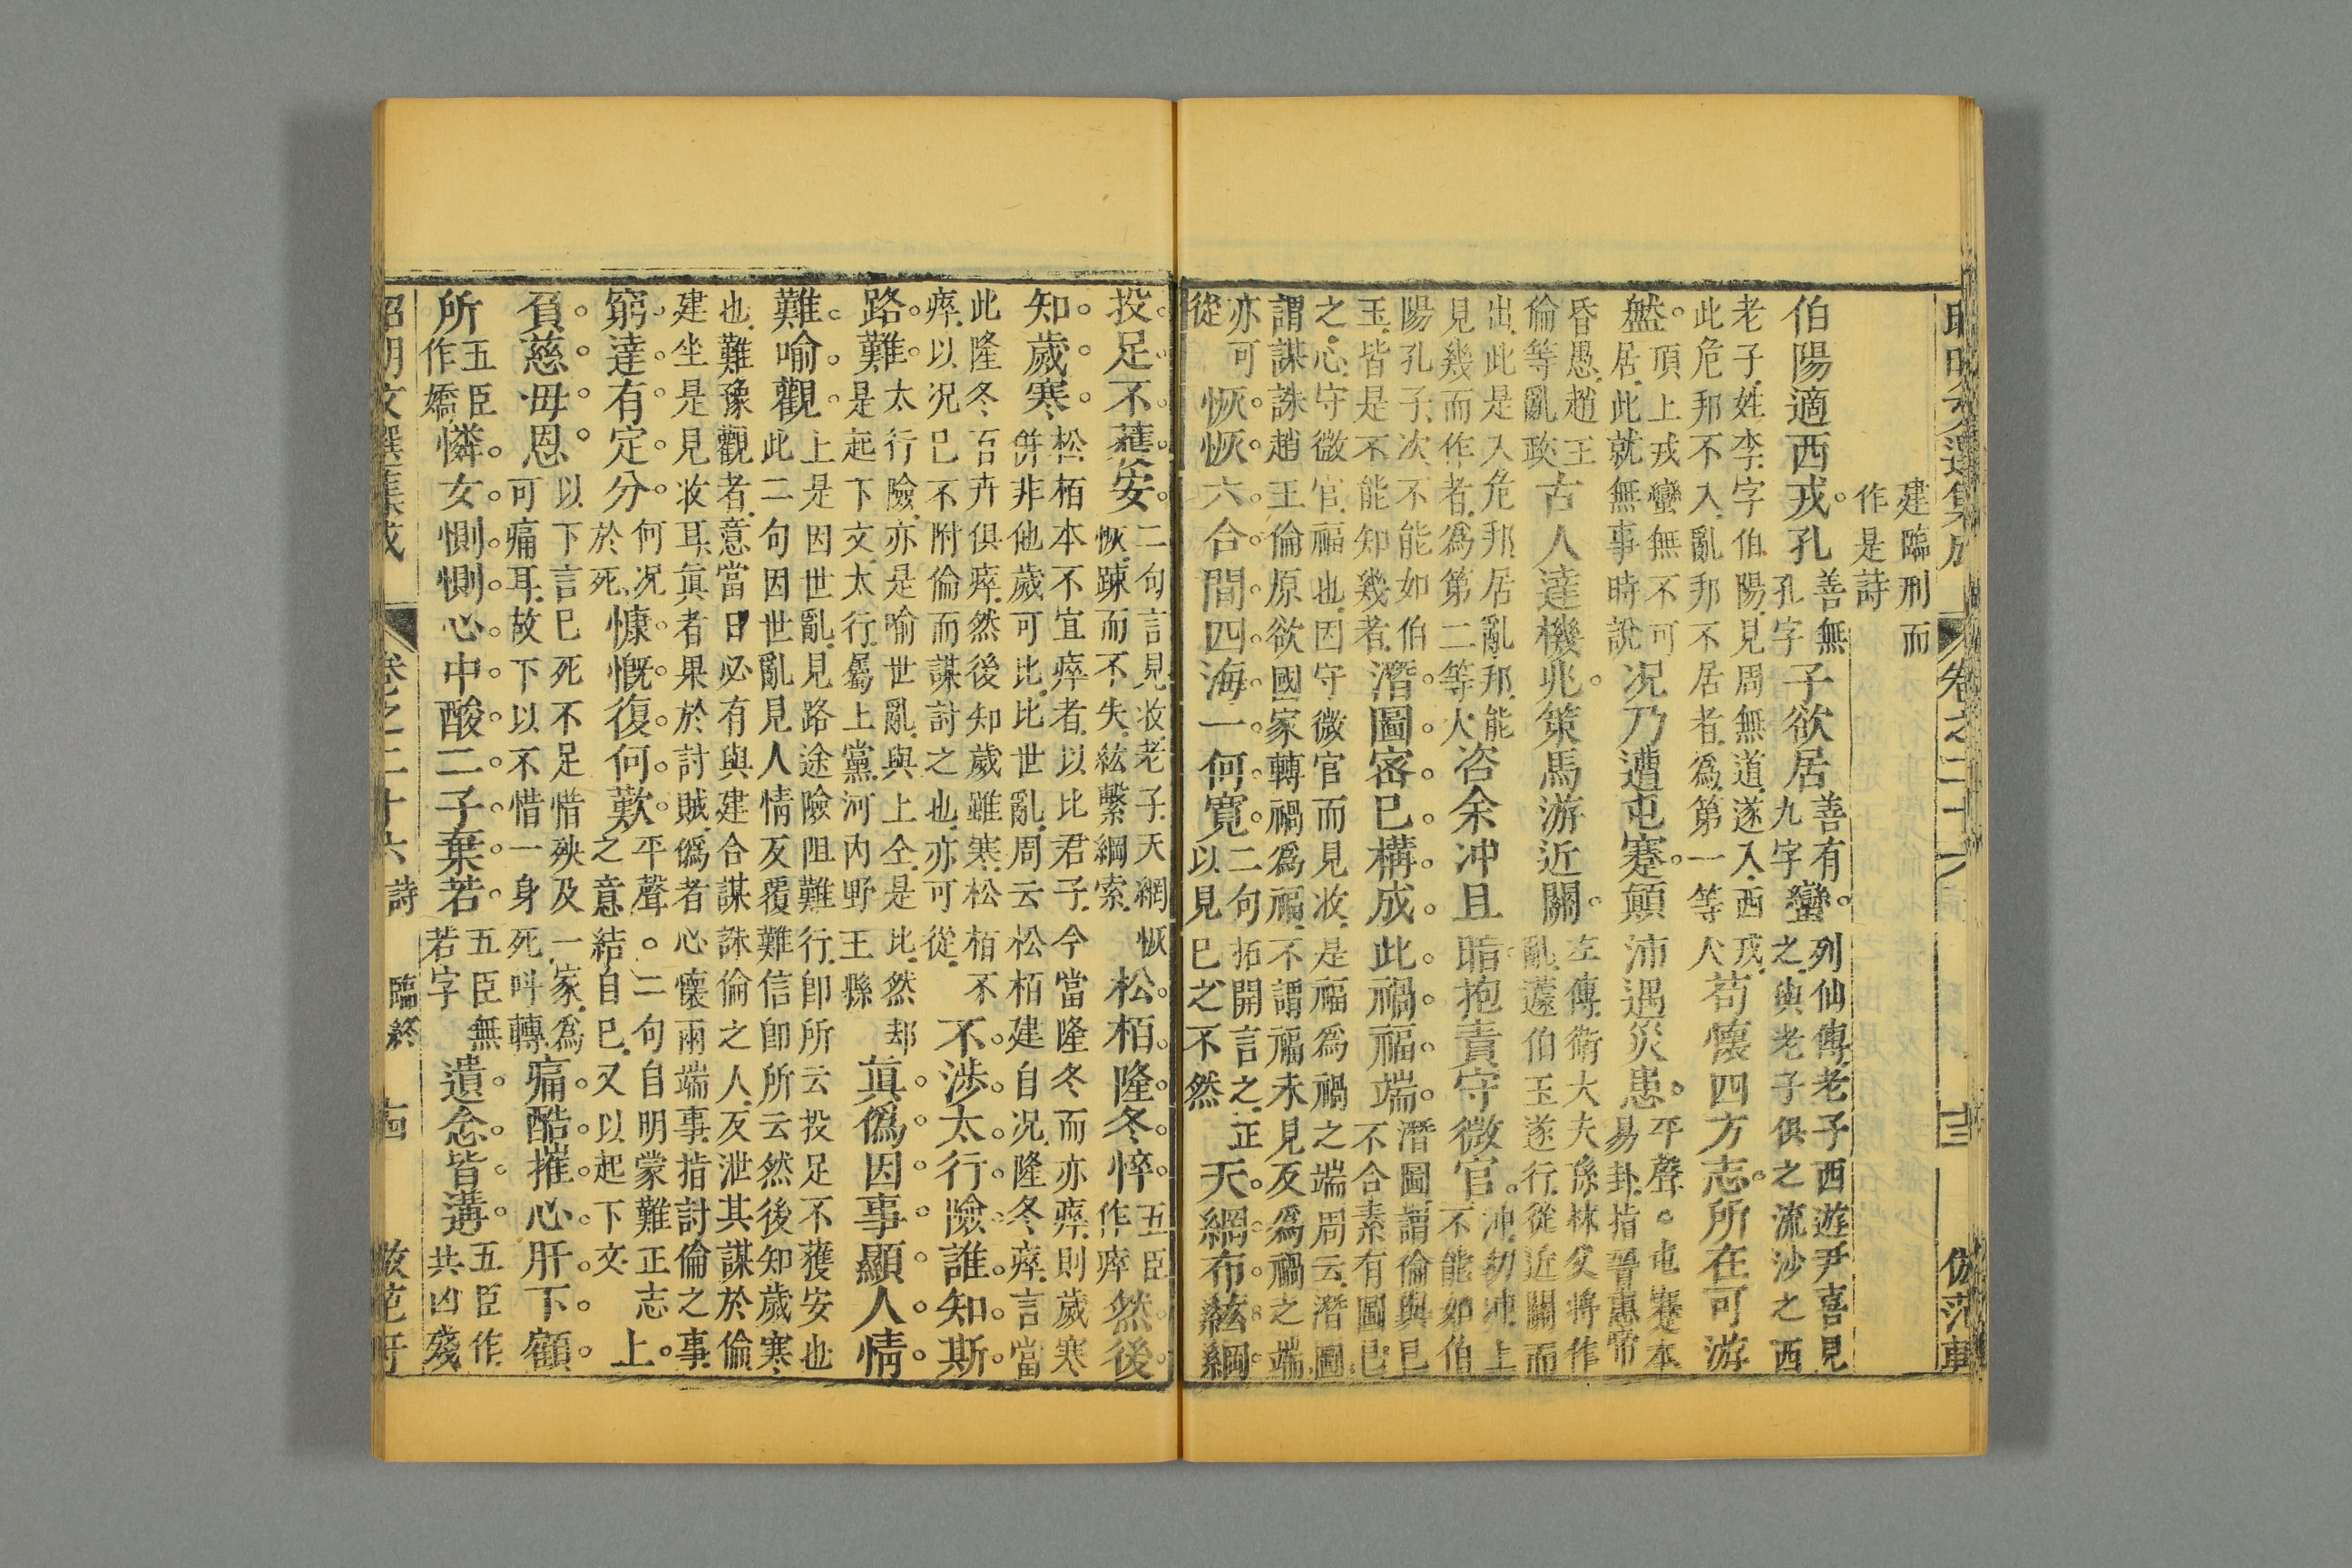 建臨刑而
作是詩
伯陽適西戎孔善無孔字子欲居善有九字蠻列仙傳老子西遊尹喜見之與老子俱之流沙之西
老子姓李字伯陽見周無道遂入西戎此危邦不入亂邦不居者爲第一等人苟懷四方志所在可游
盤頂上戎蠻無不可居此就無事時說況乃遭屯蹇顚沛遇災患平聲。屯蹇本易卦指晉惠帝
昏愚趙王倫等亂政古人達機兆策馬游近關左傳衛大夫孫林父將作亂蘧伯玉遂行從近關而
出此是入危邦居亂邦能見幾而作者爲第二等人咨余冲且暗抱責守微官冲幼冲上不能如伯
陽孔子次不能如伯玉皆是不能知幾者潛圖密已構成此禍福端潛圖謂倫與已不合素有圖已
之心守微官福也因守微官而見收是福爲禍之端周云潛圖謂謀誅趙王倫原欲國家轉禍爲福不謂福未見反爲禍之端
亦可從恢恢六合間四海一何寬二句拓開言之正以見已之不然天網布紘綱
投足不獲安二句言見收老子天網恢恢踈而不失紘繫綱索松栢隆冬悴五臣作瘁然後
知歲寒松栢本不宜瘁者以比君子今當隆冬而亦瘁則歲寒併非他歲可比比世亂周云松栢建自况隆冬瘁言當
此隆冬百卉俱瘁然後知歲雖寒松栢不瘁以况已不附倫而謀討之也亦可從不涉太行險誰知斯
路難太行險亦是喻世亂與上仝是比然却是起下文太行屬上黨河内野王縣眞僞因事顯人情
難喻觀上是因世亂見路途險阻難行卽所云投足不獲安也此二句因世亂見人情反覆難信卽所云然後知歲寒
也難豫觀者意當日必有與建合謀誅倫之人反泄其謀於倫建坐是見收耳眞者果於討賊僞者心懷兩端事指討倫之事
窮達有定分何况於死慷慨復何歎平聲。二句自明蒙難正志之意結自已又以起下文上
負慈母恩以下言已死不足惜殃及一家爲可痛耳故下以不惜一身死呌轉痛酷摧心肝下顧
所五臣作嬌憐女惻惻心中酸二子棄若五臣無若字遺念皆遘五臣作共凶殘
昭明文選集成 卷之二十六 詩 臨終 十四